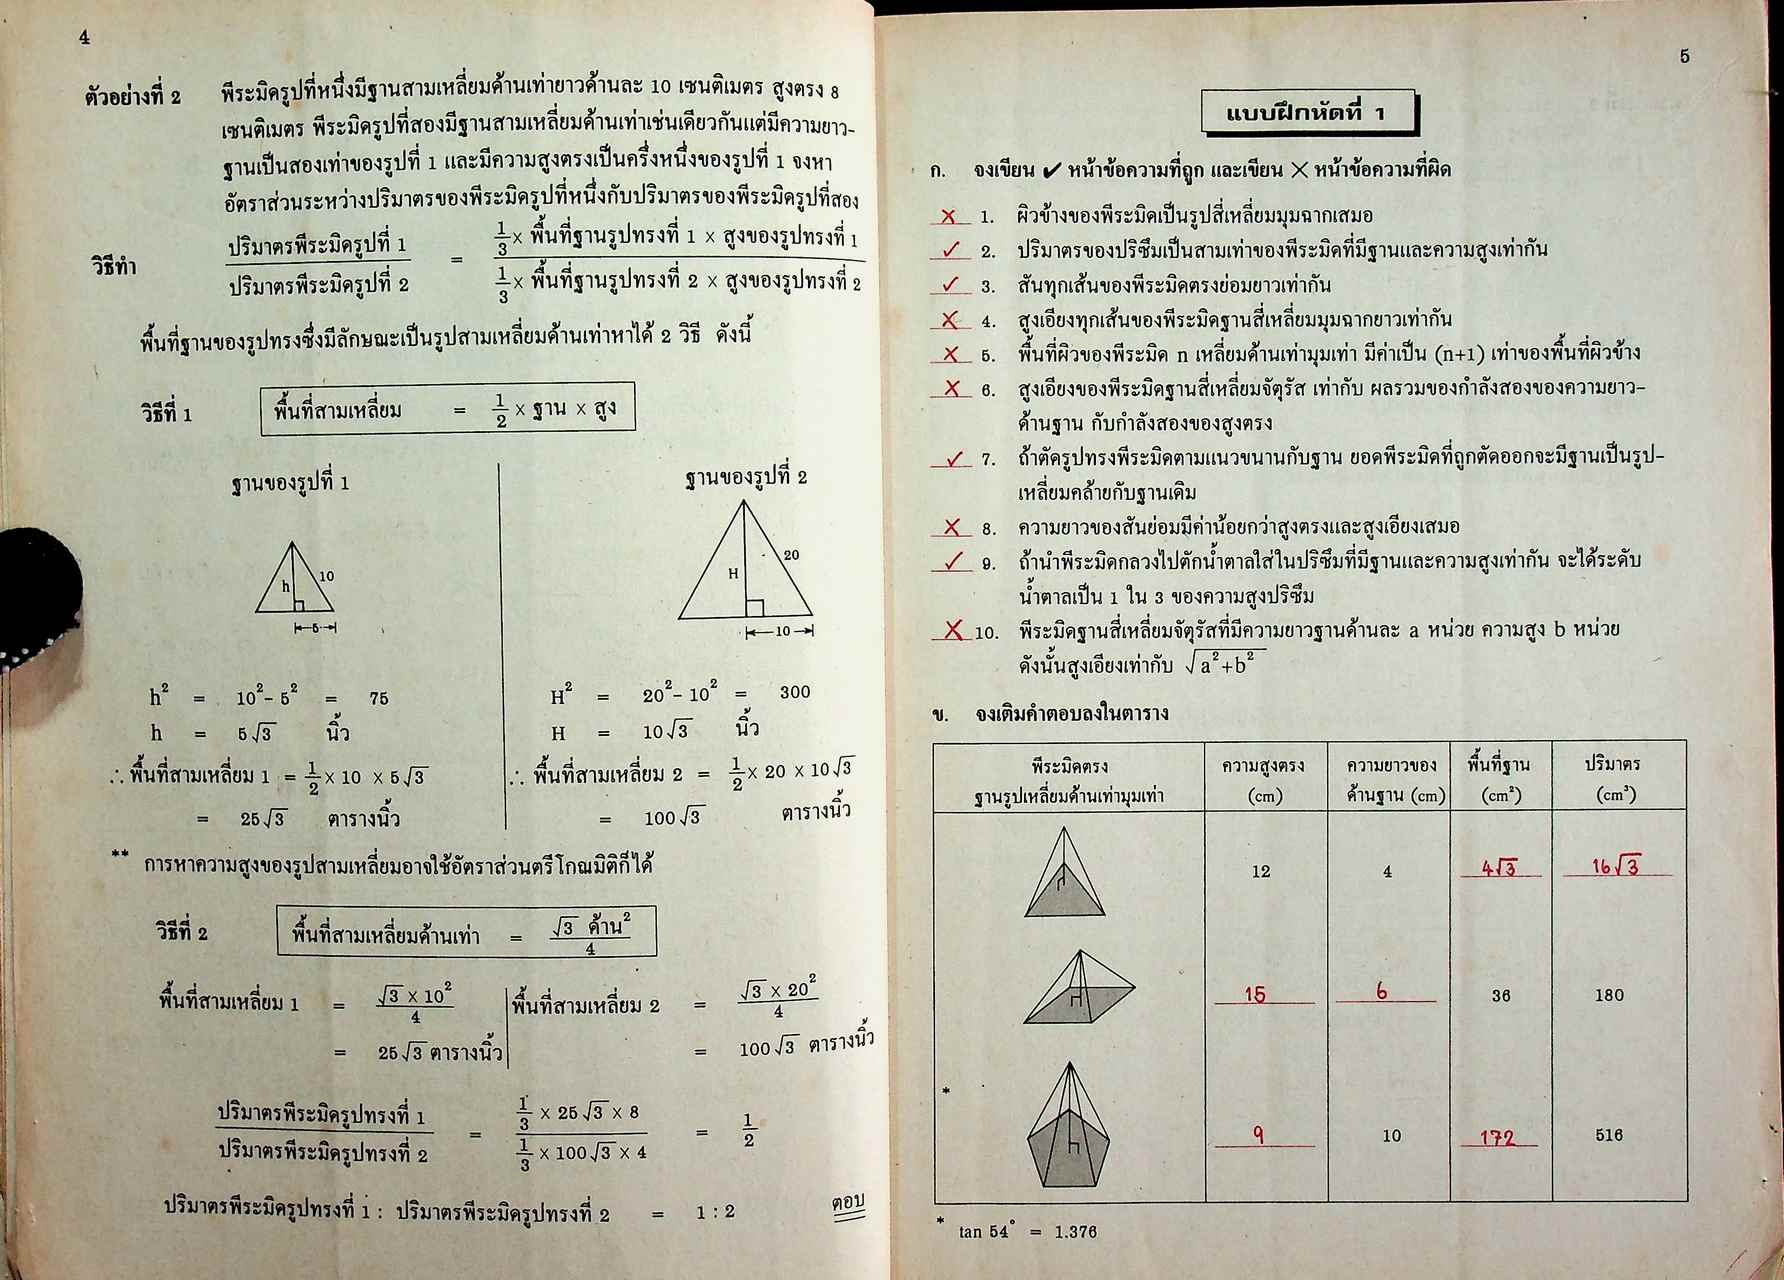 4
ตัวอย่างที่ 2 พีระมิดรูปที่หนึ่งมีฐานสามเหลี่ยมด้านเท่ายาวด้านละ 10 เซนติเมตร สูงตรง 8
เซนติเมตร พีระมิดรูปที่สองมีฐานสามเหลี่ยมด้านเท่าเช่นเดียวกันแต่มีความยาว-
ฐานเป็นสองเท่าของรูปที่ 1 และมีความสูงตรงเป็นครึ่งหนึ่งของรูปที่ 1 จงหา
อัตราส่วนระหว่างปริมาตรของพีระมิดรูปที่หนึ่งกับปริมาตรของพีระมิดรูปที่สอง
วิธีทำ ปริมาตรพีระมิดรูปที่ 1 / ปริมาตรพีระมิดรูปที่ 2 = 1/3 × พื้นที่ฐานรูปทรงที่ 1 × สูงของรูปทรงที่ 1 / 1/3 × พื้นที่ฐานรูปทรงที่ 2 × สูงของรูปทรงที่ 2
พื้นที่ฐานของรูปทรงซึ่งมีลักษณะเป็นรูปสามเหลี่ยมด้านเท่าหาได้ 2 วิธี ดังนี้
วิธีที่ 1 พื้นที่สามเหลี่ยม = 1/2 × ฐาน × สูง
ฐานของรูปที่ 1
h 10
5
h² = 10² - 5² = 75
h = 5√3 นิ้ว
∴ พื้นที่สามเหลี่ยม 1 = 1/2 × 10 × 5√3
= 25√3 ตารางนิ้ว
ฐานของรูปที่ 2
H 20
10
H² = 20² - 10² = 300
H = 10√3 นิ้ว
∴ พื้นที่สามเหลี่ยม 2 = 1/2 × 20 × 10√3
= 100√3 ตารางนิ้ว
** การหาความสูงของรูปสามเหลี่ยมอาจใช้อัตราส่วนตรีโกณมิติก็ได้
วิธีที่ 2 พื้นที่สามเหลี่ยมด้านเท่า = √3 ด้าน² / 4
พื้นที่สามเหลี่ยม 1 = √3 × 10² / 4
= 25√3 ตารางนิ้ว
พื้นที่สามเหลี่ยม 2 = √3 × 20² / 4
= 100√3 ตารางนิ้ว
ปริมาตรพีระมิดรูปทรงที่ 1 / ปริมาตรพีระมิดรูปทรงที่ 2 = 1/3 × 25√3 × 8 / 1/3 × 100√3 × 4 = 1/2
ปริมาตรพีระมิดรูปทรงที่ 1 : ปริมาตรพีระมิดรูปทรงที่ 2 = 1 : 2 ตอบ
5
แบบฝึกหัดที่ 1
ก. จงเขียน ✔ หน้าข้อความที่ถูก และเขียน ✕ หน้าข้อความที่ผิด
✕ 1. ผิวข้างของพีระมิดเป็นรูปสี่เหลี่ยมมุมฉากเสมอ
✓ 2. ปริมาตรของปริซึมเป็นสามเท่าของพีระมิดที่มีฐานและความสูงเท่ากัน
✓ 3. สันทุกเส้นของพีระมิดตรงย่อมยาวเท่ากัน
✕ 4. สูงเอียงทุกเส้นของพีระมิดฐานสี่เหลี่ยมมุมฉากยาวเท่ากัน
✕ 5. พื้นที่ผิวของพีระมิด n เหลี่ยมด้านเท่ามุมเท่า มีค่าเป็น (n+1) เท่าของพื้นที่ผิวข้าง
✕ 6. สูงเอียงของพีระมิดฐานสี่เหลี่ยมจัตุรัส เท่ากับ ผลรวมของกำลังสองของความยาว-
ด้านฐาน กับกำลังสองของสูงตรง
✓ 7. ถ้าตัดรูปทรงพีระมิดตามแนวขนานกับฐาน ยอดพีระมิดที่ถูกตัดออกจะมีฐานเป็นรูป-
เหลี่ยมคล้ายกับฐานเดิม
✕ 8. ความยาวของสันย่อมมีค่าน้อยกว่าสูงตรงและสูงเอียงเสมอ
✓ 9. ถ้านำพีระมิดกลวงไปตักน้ำตาลใส่ในปริซึมที่มีฐานและความสูงเท่ากัน จะได้ระดับ
น้ำตาลเป็น 1 ใน 3 ของความสูงปริซึม
✕ 10. พีระมิดฐานสี่เหลี่ยมจัตุรัสที่มีความยาวฐานด้านละ a หน่วย ความสูง b หน่วย
ดังนั้นสูงเอียงเท่ากับ √a²+b²
ข. จงเติมคำตอบลงในตาราง
พีระมิดตรง ความสูงตรง ความยาวของ พื้นที่ฐาน ปริมาตร
ฐานรูปเหลี่ยมด้านเท่ามุมเท่า (cm) ด้านฐาน (cm) (cm²) (cm³)
12 4 4√3 16√3
15 6 36 180
* 9 10 172 516
* tan 54° = 1.376